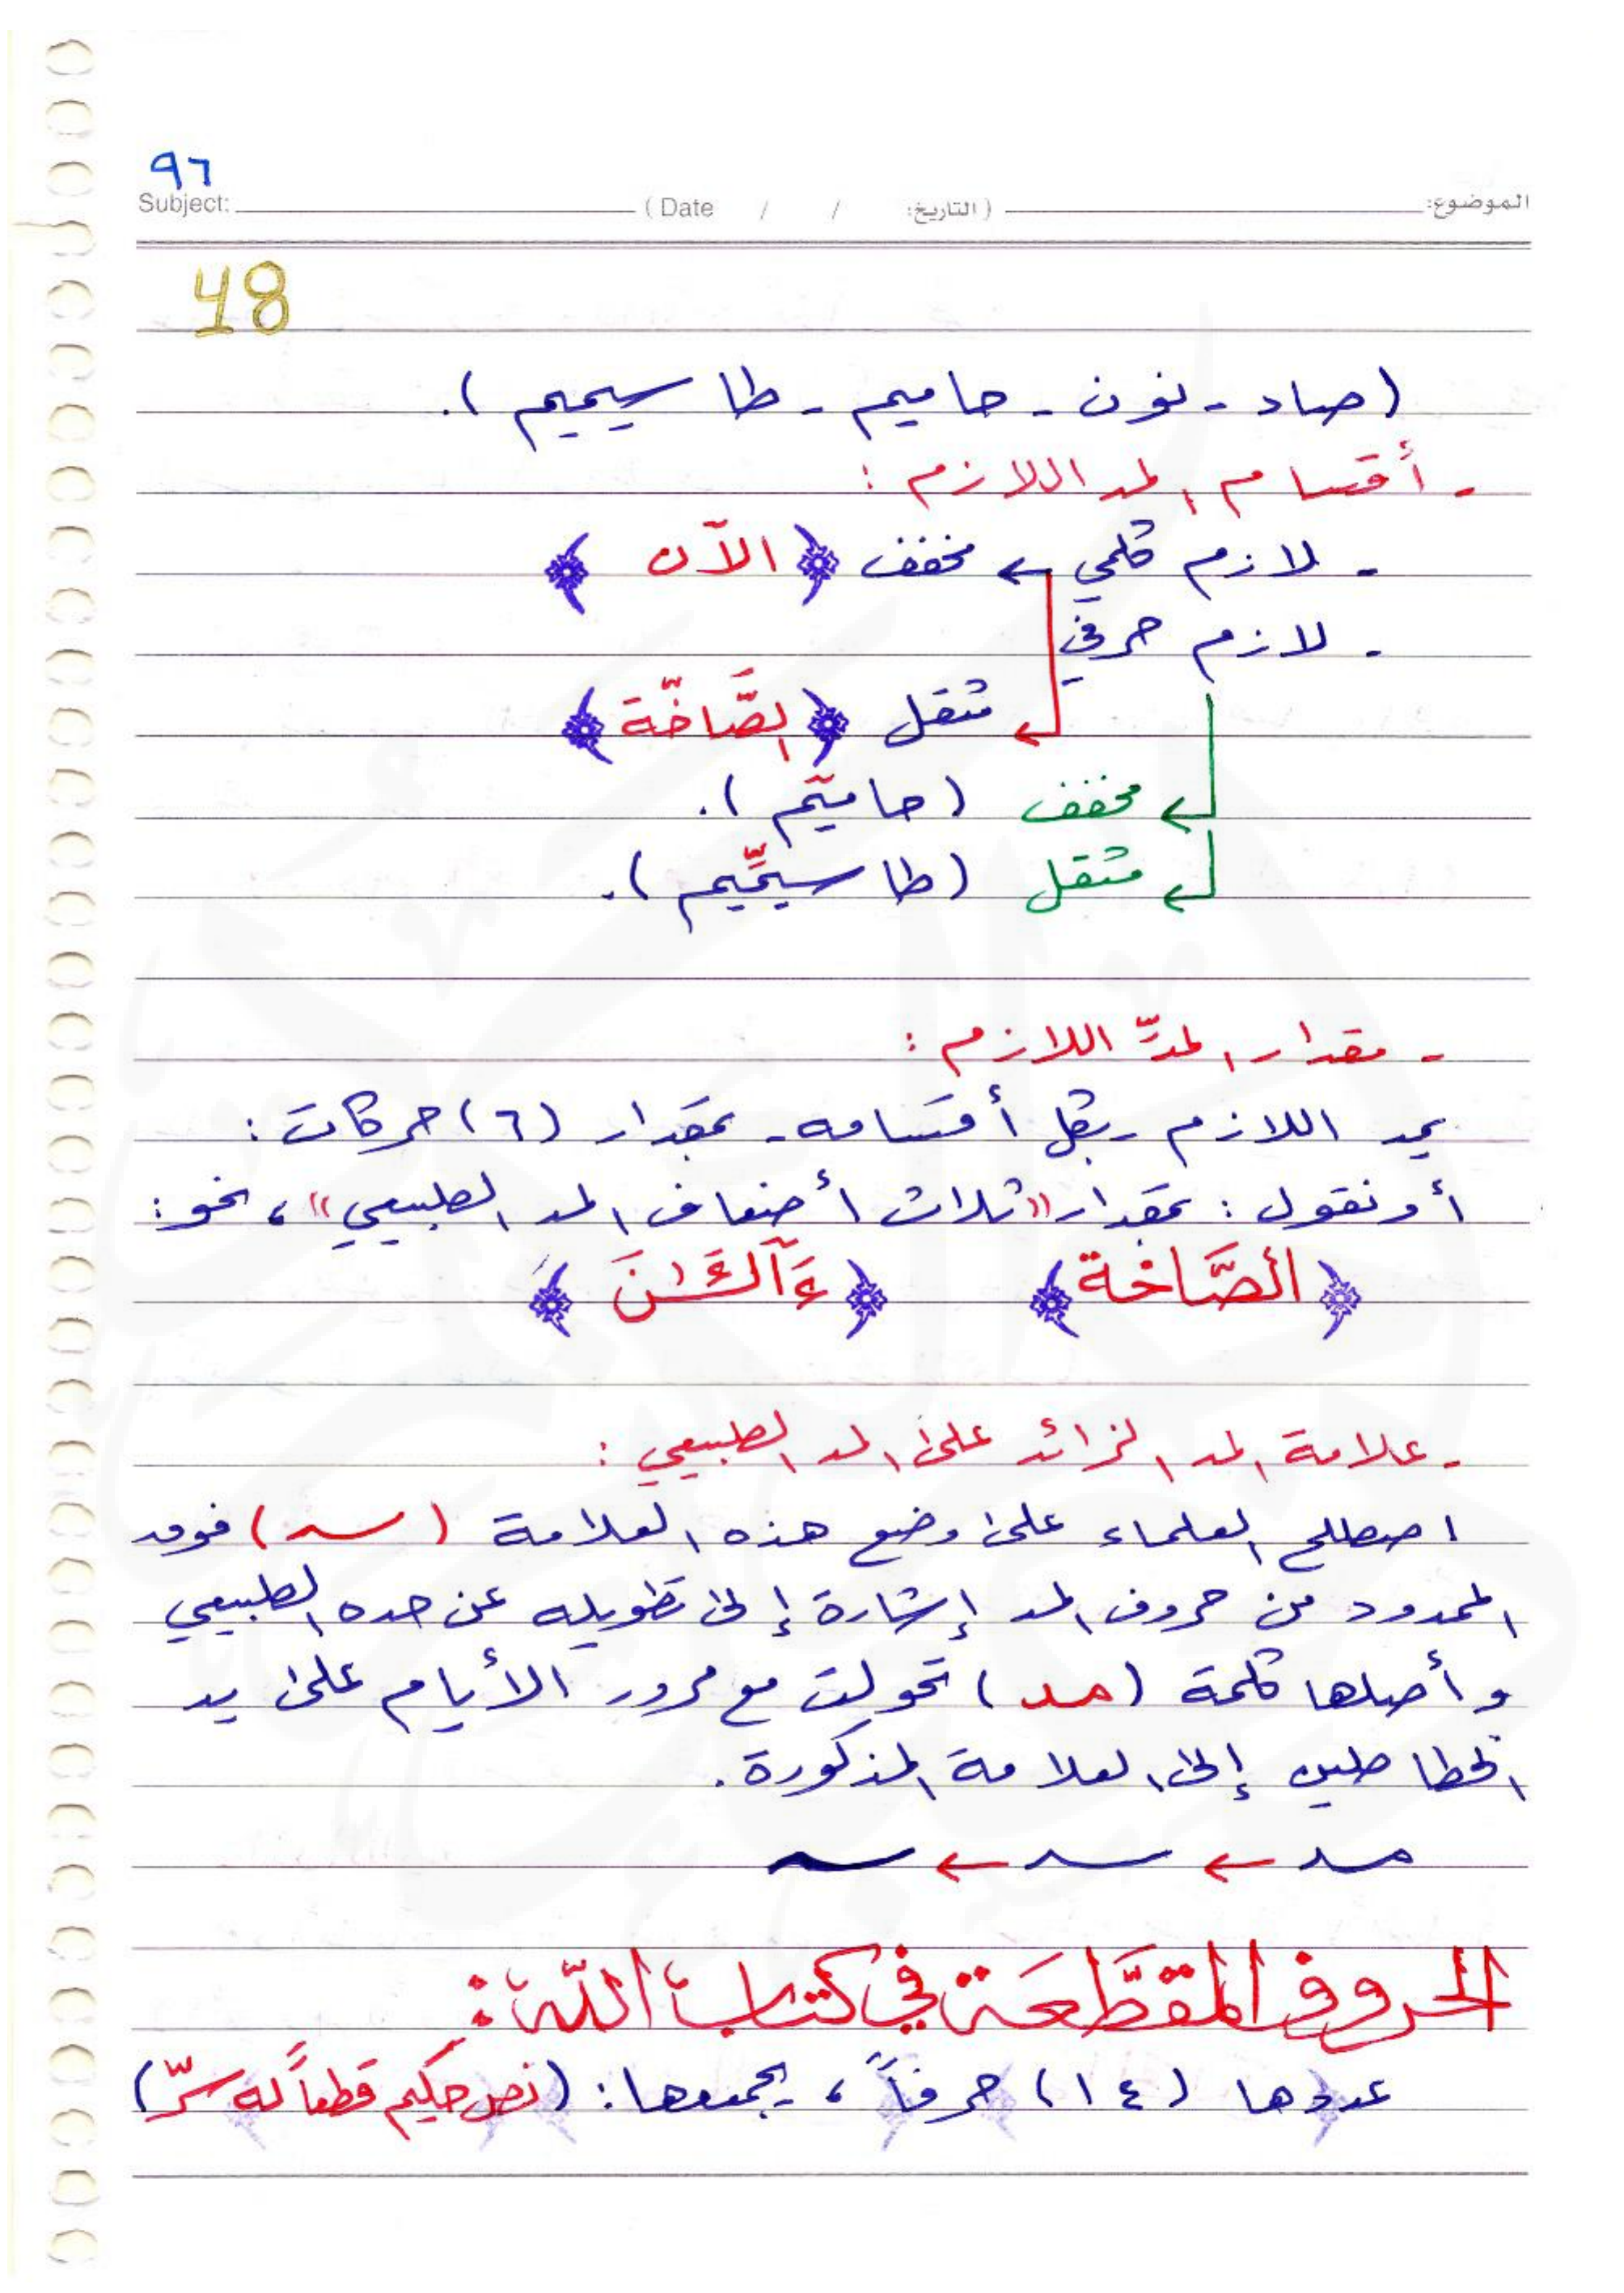 ٩٦
Subject: ( Date / / التاريخ: ) الموضوع:
48
(صاد - نون - حاميم - طا سيميم ).
- أقسام المد اللازم :
- لازم كلمي ← مخفف ﴿ الآن ﴾
- لازم حرفي
مثقل ﴿ الصَّاخَّة ﴾
مخفف ( حا ميٓم ).
مثقل ( طا سيٓمّيم ).
- مقدار المدِّ اللازم :
يمد اللازم - بكل أقسامه - بمقدار (٦) حركات :
أو نقول : بمقدار «ثلاث أضعاف المد الطبيعي» ، نحو :
﴿ الصَّاخة ﴾ ﴿ ءَآلْـَٰٔنَ ﴾
- علامة المد الزائد على المد الطبيعي :
اصطلح العلماء على وضع هذه العلامة ( ـــٓ ) فوق
الممدود من حروف المد إشارة إلى تطويله عن حده الطبيعي
وأصلها كلمة ( مد ) تحولت مع مرور الأيام على يد
الخطاطين إلى العلامة المذكورة .
مد ← ← 
الحروف المقطَّعَة في كتاب اللّه :
عددها (١٤) حرفاً ، يجمعها : (نص حكيم قطعاً له سرّ)